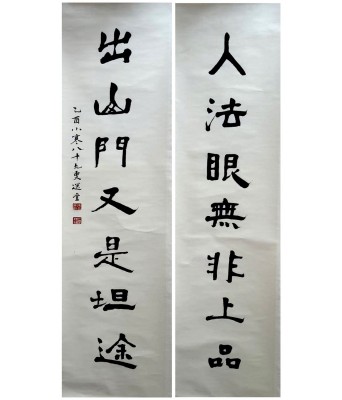 人法眼無非上品
出山門又是坦途
乙酉小寒八十九叟選堂